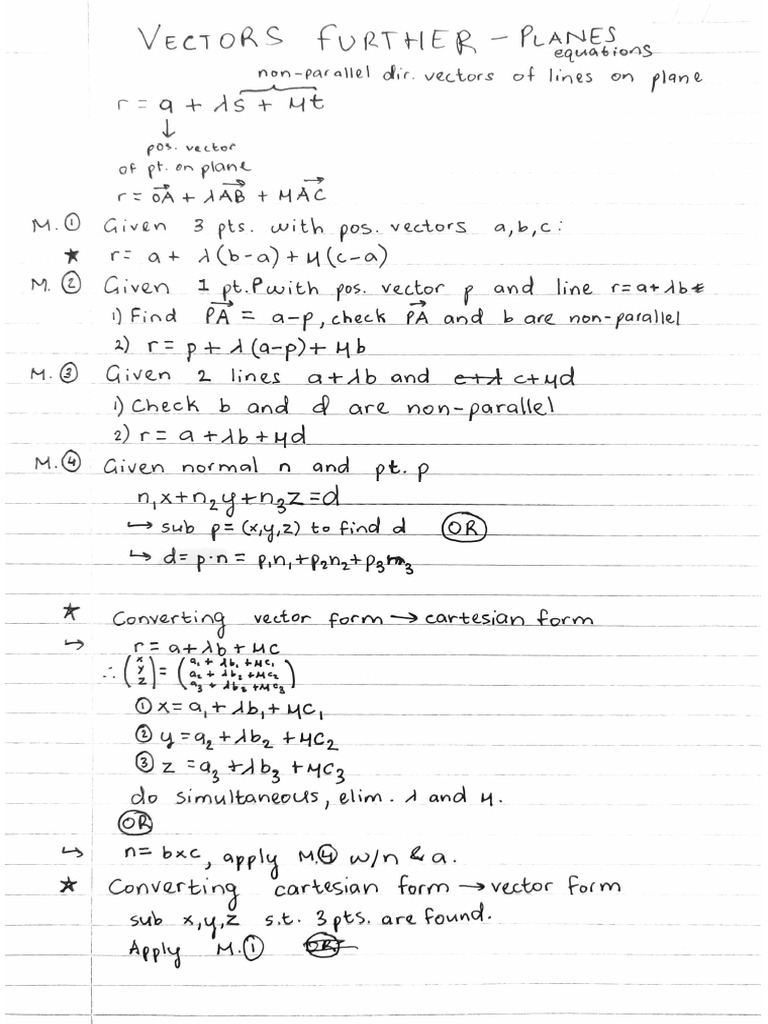 VECTORS FURTHER – PLANES
equations
non-parallel dir. vectors of lines on plane
r = a + λs + μt
↓
pos. vector
of pt. on plane
r = OA + λAB + μAC
M.① Given 3 pts. with pos. vectors a, b, c:
★ r = a + λ(b-a) + μ(c-a)
M.② Given 1 pt. P with pos. vector p and line r = a + λb
1) Find PA = a-p, check PA and b are non-parallel
2) r = p + λ(a-p) + μb
M.③ Given 2 lines a+λb and c+λ c+μd
1) Check b and d are non-parallel
2) r = a + λb + μd
M.④ Given normal n and pt. p
n₁x+n₂y+n₃z=d
↪ sub p=(x,y,z) to find d OR
↪ d = p·n = p₁n₁+p₂n₂+p₃n₃
★ Converting vector form → cartesian form
↪ r = a + λb + μc
∴ (x y z) = (a₁ + λb₁ + μc₁
a₂ + λb₂ + μc₂
a₃ + λb₃ + μc₃)
① x = a₁ + λb₁ + μc₁
② y = a₂ + λb₂ + μc₂
③ z = a₃ + λb₃ + μc₃
do simultaneous, elim. λ and μ.
OR
↪ n = b×c, apply M.④ w/n & a.
★ Converting cartesian form → vector form
sub x,y,z s.t. 3 pts. are found.
Apply M.① OR